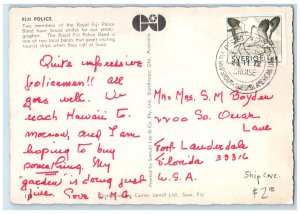 FIJI POLICE.
Two members of the Royal Fiji Police
Band have broad smiles for our photo-
grapher. The Royal Fiji Police Band is
one of two local bands that great visiting
tourist ships when they call at Suva.
Quite impressive
policemen!! all
goes well. We
reach Hawaii to-
morrow, and I am
hoping to buy
something. My
"garden" is doing just
fine. Love L.M.G.
Printed by Samuel Lee & Co. Pty. Ltd., Stanthorpe, Qld., Australia
SVERIGE
CRUISE
Mr & Mrs. S. M Boyden
2200 So. Ocean
Lane
Fort Lauderdale
Florida 33316
U.S.A.
Ship canc.
$2.00
Caines Jannif Ltd., Suva, Fiji